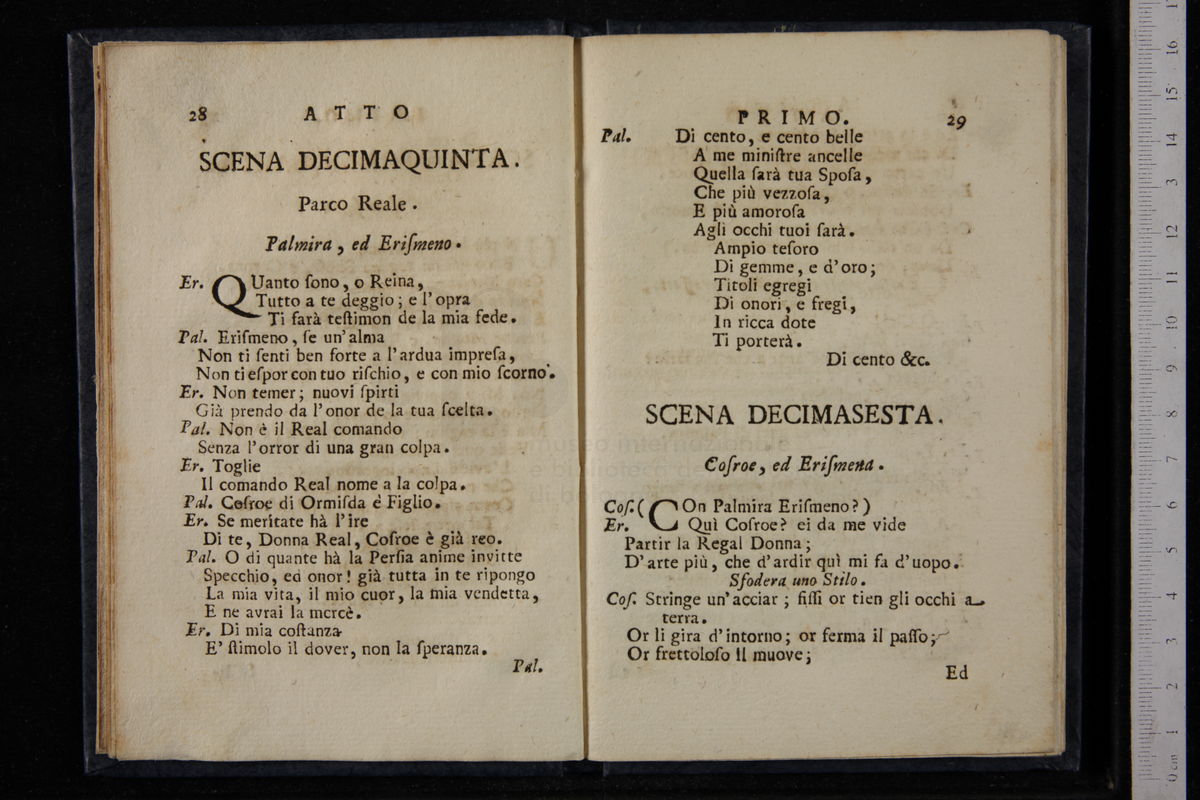 28 ATTO
SCENA DECIMAQUINTA.
Parco Reale.
Palmira, ed Eriſmeno.
Er. QUanto ſono, o Reina,
Tutto a te deggio; e l'opra
Ti farà teſtimon de la mia fede.
Pal. Eriſmeno, ſe un'alma
Non ti ſenti ben forte a l'ardua impreſa,
Non ti eſpor con tuo riſchio, e con mio ſcorno.
Er. Non temer; nuovi ſpirti
Già prendo da l'onor de la tua ſcelta.
Pal. Non è il Real comando
Senza l'orror di una gran colpa.
Er. Toglie
Il comando Real nome a la colpa.
Pal. Coſroe di Ormiſda è Figlio.
Er. Se meritate hà l'ire
Di te, Donna Real, Coſroe è già reo.
Pal. O di quante hà la Perſia anime invitte
Specchio, ed onor! già tutta in te ripongo
La mia vita, il mio cuor, la mia vendetta,
E ne avrai la mercè.
Er. Di mia coſtanza
E' ſtimolo il dover, non la ſperanza.
Pal.
PRIMO. 29
Pal. Di cento, e cento belle
A me miniſtre ancelle
Quella ſarà tua Spoſa,
Che più vezzoſa,
E più amoroſa
Agli occhi tuoi ſarà.
Ampio teſoro
Di gemme, e d'oro;
Titoli egregi
Di onori, e fregi,
In ricca dote
Ti porterà.
Di cento &c.
SCENA DECIMASESTA.
Coſroe, ed Eriſmena.
Coſ. (COn Palmira Eriſmeno?)
Er. Quì Coſroe? ei da me vide
Partir la Regal Donna;
D'arte più, che d'ardir quì mi fa d'uopo.
Sfodera uno Stilo.
Coſ. Stringe un'acciar; fiſſi or tien gli occhi a
terra.
Or li gira d'intorno; or ferma il paſſo;
Or frettoloſo il muove;
Ed
museo internazionale
e biblioteca della
di bologna